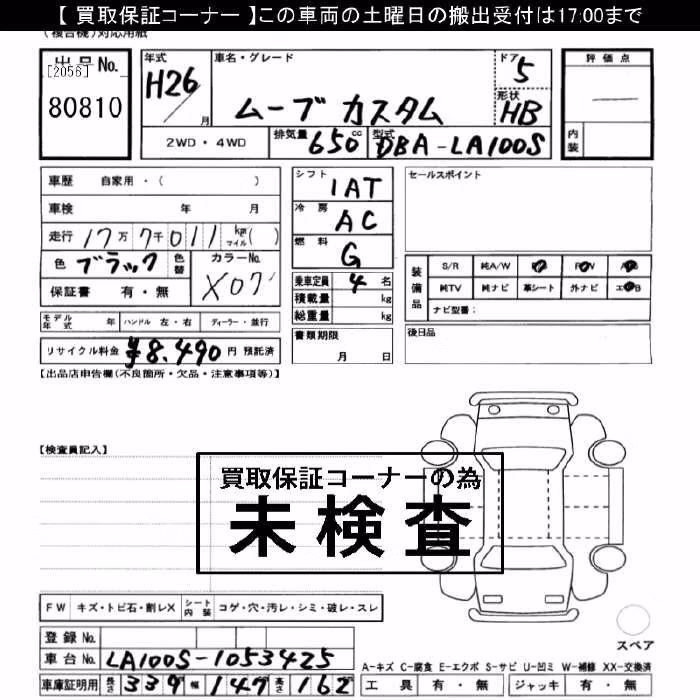 【 買取保証コーナー 】この車両の土曜日の搬出受付は17:00まで
(複合機)対応用紙
出品No.
[2056]
80810
年式
H26/
月
車名・グレード
ムーブ カスタム
ドア 5
形状 HB
2WD・4WD
排気量 650 cc
型式 DBA-LA100S
評価点
—
内装
車歴 自家用・( )
車検 年 月
走行 17万 7千 011 km マイル ( )
色 ブラック 色替
カラーNo. X07
保証書 有・無
シフト IAT
冷房 AC
燃料 G
乗車定員 4 名
積載量 kg
総重量 kg
書類期限
月 日
セールスポイント
装備品
S/R 純A/W
純TV 純ナビ 革シート 外ナビ
ナビ型番：
後日品
モデル年式 年 ハンドル 左・右 ディーラー・並行
リサイクル料金 ¥8,490 円 預託済
【出品店申告欄(不良箇所・欠品・注意事項等)】
【検査員記入】
買取保証コーナーの為
未検査
FW キズ・トビ石・割レX シート内装 コゲ・穴・汚レ・シミ・破レ・スレ
スペア
登録No.
車台No. LA100S-1053425
車庫証明用 長さ 339 幅 147 高さ 162
A-キズ C-腐食 E-エクボ S-サビ U-凹ミ W-補修 XX-交換済
工具 有・無 ジャッキ 有・無